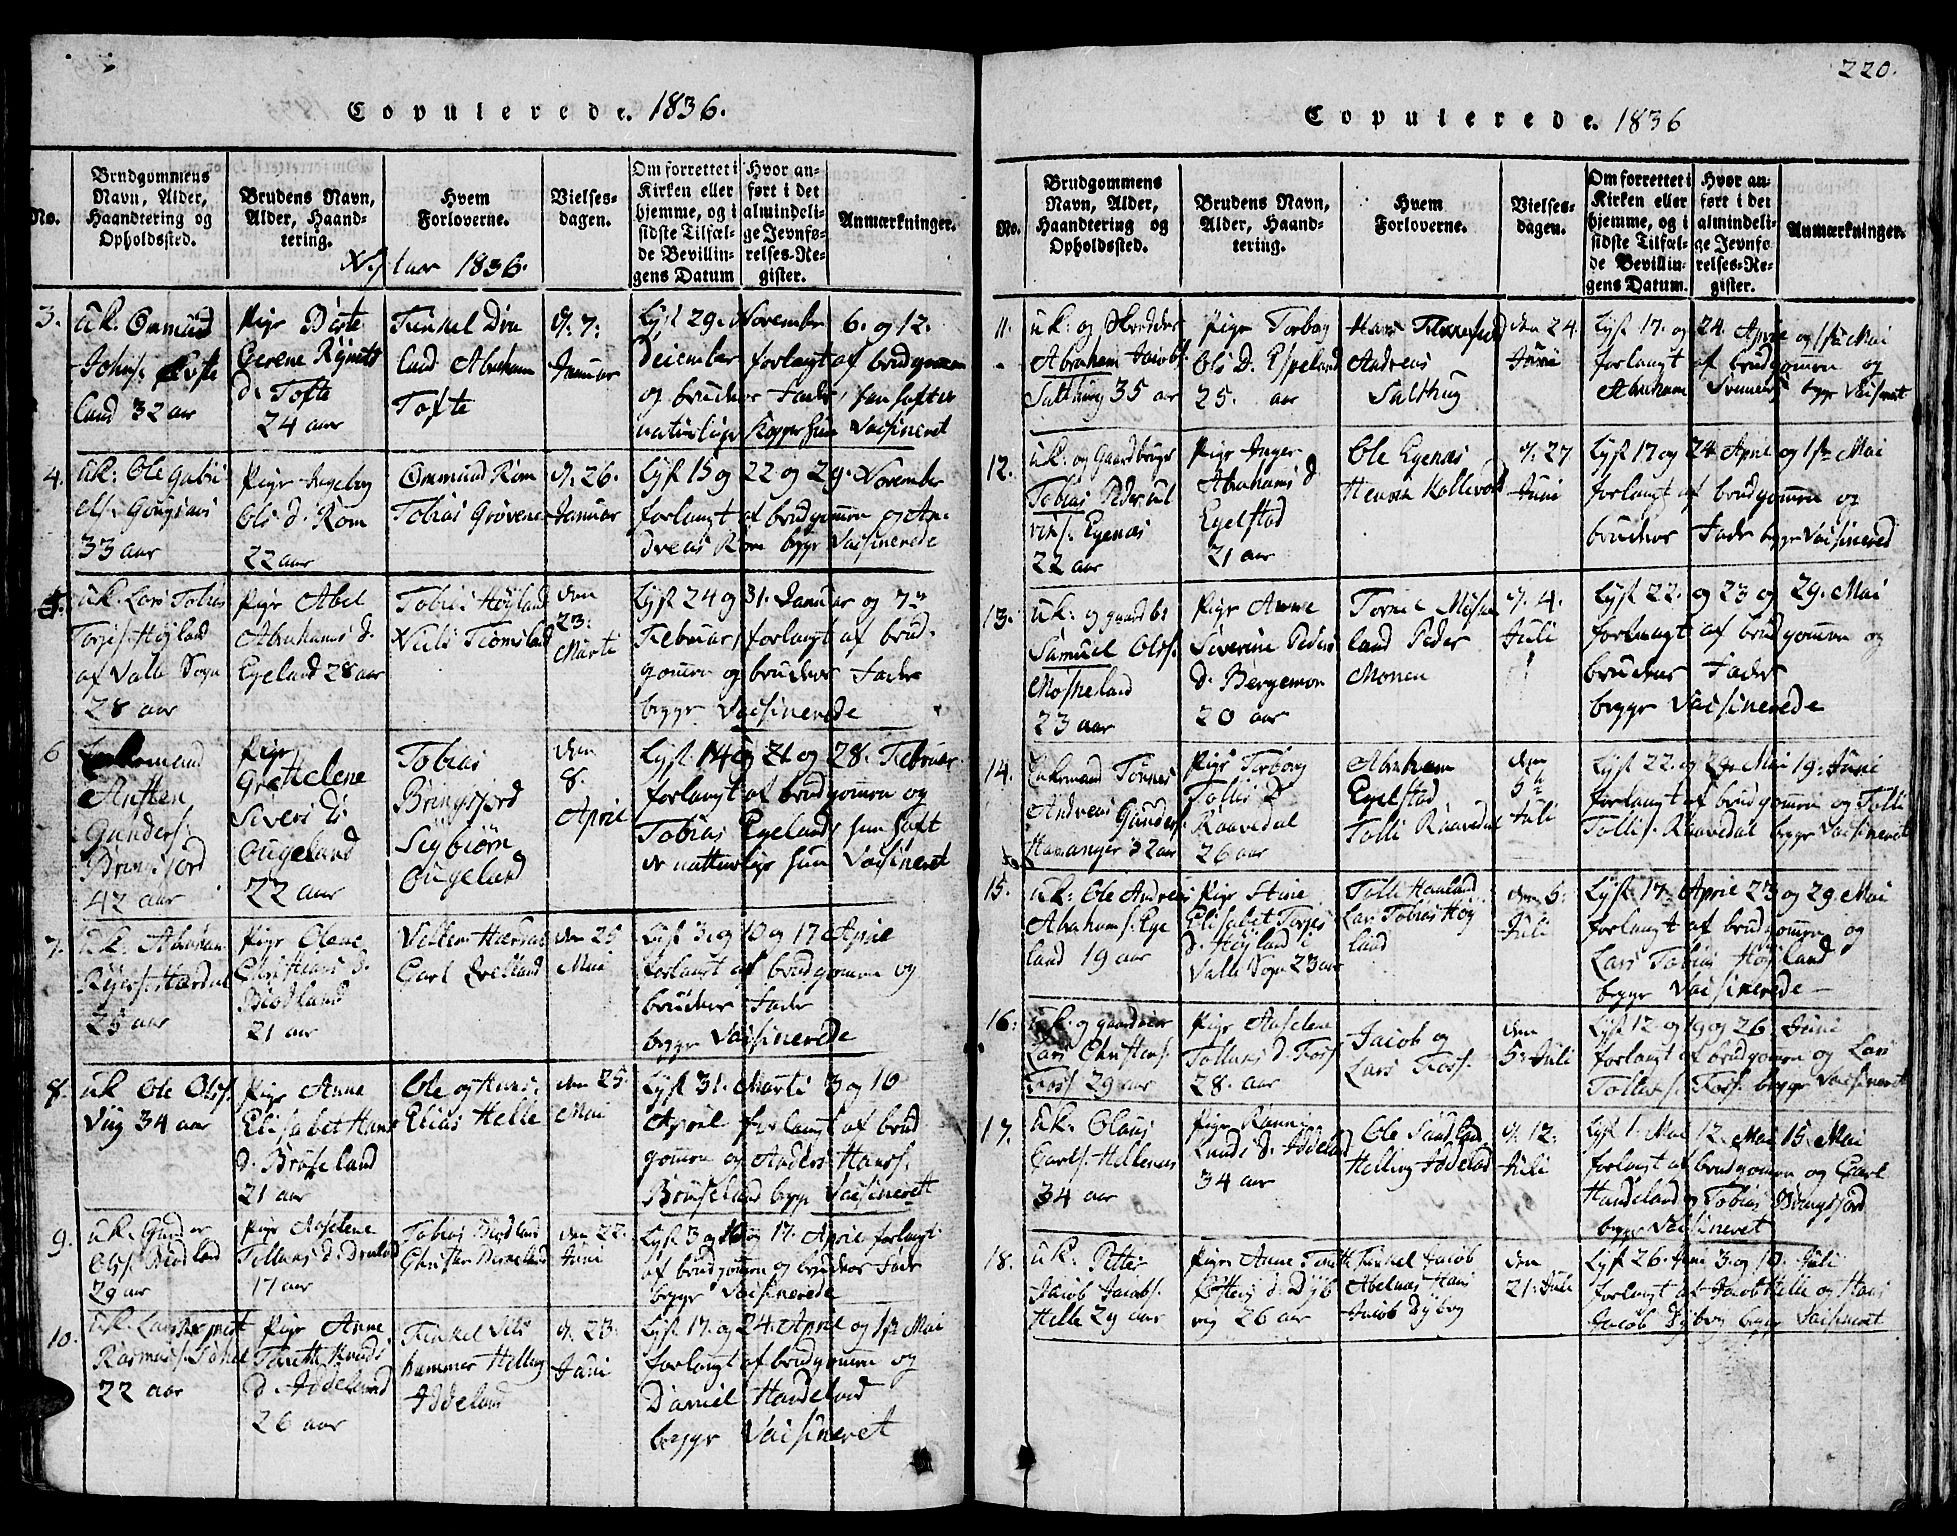 Copulerede. 1836.
No.
Brudgommens
Navn, Alder,
Haandtering og
Opholdssted.
Brudens Navn,
Alder, Haand-
tering.
Hvem
Forloverne.
Vielses-
dagen.
Om forrettet i
Kirken eller
hjemme, og i
sidste Tilfæl-
de Bevillin-
gens Datum
Hvor an-
ført i det
almindeli-
ge Jevnfø-
relses-Re-
gister.
Anmærkninger.
Nytaar 1836.
3.
uk. Ommund
Johns.
land 32 aar
Pige Birte
Serene
d. Tofte
24 aar
Tinkel
land Abraham
Tofte
d. 7:
Januar
Lyst 29. November 6. og 12.
December forlangt af brudgommen
og brudens Fader,
naturlige Kopper hun Vacsineret
4.
uk: Ole Gabri
els.
33 aar
Pige Ingebog
Ols d. Rom
22 aar
Ommund Rom
Tobias Grøvene
d. 26.
Januar
Lyst 15 og 22 og 29. November
forlangt af brudgommen og An-
dreas Rom begge Vacsinerede
5.
uk. Lars Tobias
Torjes. Høyland
af Valle Sogn
28 aar
Pige Abel
Abrahams d.
Egeland 28 aar
Tobias Høyland
Niels Tiomsland
den
23:
Marti
Lyst 24 og 31. Januar og 7de
Februar, forlangt af brud-
gommen og brudens Fader
begge Vacsinerede
6
Enkemand
Anften
Gunders.
Bringsjord
42 aar
Pige
Grethelene
Sivers d.
Ougeland
22 aar
Tobias
Bringsjord
Sigbiørn
Ougeland
den
8.
April
Lyst 14 og 21 og 28. Februar
forlangt af brudgommen og
Tobias Egeland, hun haft
de natturlige hun Vacsineret
7.
uk. Abraham
Hærdal
25 aar
Pige Olene
Christens d.
Birdland
21 aar
Villum Hærdal
Carl Qvelland
den 25
Mai
Lyst 3. og 10 og 17 April
forlangt af brudgommen og
brudens Fader
begge Vacsinerede
8.
uk Ole Ols.
Viig 34 aar
Pige Anne
Elisabet Hans
d. Bruseland
21 aar
Ole og Hans
Elias Helle
den 25.
Mai
Lyst 31. Marti 3 og 10
April forlangt af brud
gommen og Anders Hans.
Bruseland begge Vacsinerett
9.
uk. Gunder
Ols. Birdland
29 aar
Pige Aaselene
Tollags d.
17 aar
Tobias Birdland
Christen
den 22.
Juni
Lyst 3 og 10 og 17. April forlangt
af brudgommen og brudens Fader
begge Vacsinerede
10.
uk.
Rasmus.
22 aar
Pige Anne
Tarette Knuds
d. Iddeland
26 aar
Tinkel Ula
hammer Helleg
Iddeland
d. 23.
Juni
Lyst 17. og 24. April og 1ste Mai
forlangt af brudgommen og
Daniel Handeland
begge Vacsineret
220.
Copulerede. 1836
No.
Brudgommens
Navn, Alder,
Haandtering og
Opholdssted.
Brudens Navn,
Alder, Haand-
tering.
Hvem
Forloverne.
Vielses-
dagen.
Om forrettet i
Kirken eller
hjemme, og i
sidste Tilfæl-
de Bevillin-
gens Datum.
Hvor an-
ført i det
almindeli-
ge Jevnfø-
relses-Re-
gister.
Anmærkninger.
11.
uk: og Skredder
Abraham Jacobs.
Salthug 35 aar
Pige Torbog
Ols D. Espeland
25. aar
Hans
Andreas
Salthug
den 24.
Juni
Lyst 17. og 24 April og 1ste Mai
forlangt af brudgommen og
Abraham begge Vacsinet
12.
uk: og Gaardbruger
Tobias Peder
Egenæs
22 aar
Pige Inger
Abrahams d
Egelstad
21 aar
Ole Egenæs
Henrik Kollevold
d. 27
Juni
Lyst 17 og 24 April og 1ste Mai
forlangt af brudgommen og
brudens Fader begge Vacsinered
13.
uk: og gaardbr
Samuel Ols.
Mosseland
23 aar
Pige Anne
Siverine Peders
d. Bergemon
20 aar
Tønnes Mosse
land Peder
Monen
d. 4.
Juli
Lyst 22. og 23 og 29. Mai
forlangt af brudgommen og
brudens Fader
begge Vacsinerede
14.
Enkemand Tønnes
Andreas Gunders.
Hananger 32 aar
Pige Torborg
Tollis D
Raavedal
26 aar
Abraham
Egelstad
Tolli Raavedal
den
5te
Juli
Lyst 22. og 24. Mai 19. Juni
forlangt af brudgommen og Tolli
Tollis. Raavedal begge Vacsineret
15.
uk: Ole Andreas
Abrahams. Ege
land 19 aar
Pige Stine
Elisabet Torjes
d. Høyland i
Valle Sogn 23 aar
Tolli Hauland
Lars Tobias Høy
land
den 5.
Juli
Lyst 17. April 23 og 29. Mai
forlangt af brudgommen og
Lars Tobias Høyland
begge Vacsinerede
16.
uk. og gaardeier
Lars Christens.
Foss. 29 aar
Pige Aaselene
Tollags d. Foss.
28. aar
Jacob og
Lars Foss.
den
5. Juli
Lyst 12. og 19 og 26. Juni
forlangt af brudgommen og Lars
Tollags. Foss. begge Vacsineret
17.
uk. Olaus
Carls. Hellenes
34 aar
Pige Rønni
Knuds d. Iddeland
34 aar
Ole
Helleg Iddeland
d. 12.
Juli
Lyst 1. Mai 12. Mai 15. Mai
forlangt af brudgommen og Carl
Handeland og Tobias Bringsjord
begge Vacsineret
18.
uk. Petter
Jacob Jacobs.
Helle 29 aar
Pige Anne
d. Dyb
vig 26 aar
Tinkel Jacob
Abelnæs Hans
Jacob Dybvig
den
21. Juli
Lyst 26. Juni 3. og 10. Juli
forlangt af Jacob Helle og Hans
Jacob Dybvig begge Vacsineret